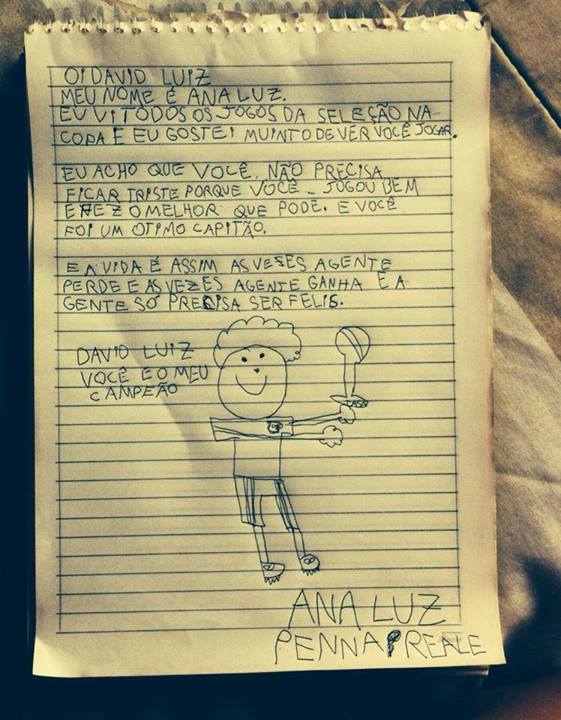 OI DAVID LUIZ
MEU NOME É ANA LUZ.
EU VI TODOS OS JOGOS DA SELEÇÃO NA
COPA E EU GOSTEI MUINTO DE VER VOCÊ JOGAR.
EU ACHO QUE VOCÊ NÃO PRECISA
FICAR TRISTE PORQUE VOCÊ JOGOU BEM
E FEZ O MELHOR QUE PODE. E VOCÊ
FOI UM OTIMO CAPITÃO.
E A VIDA É ASSIM AS VESES AGENTE
PERDE E AS VEZES AGENTE GANHA E A
GENTE SÓ PRECISA SER FELIS.
DAVID LUIZ
VOCÊ E O MEU
CAMPEÃO
ANA LUZ
PENNA REALE